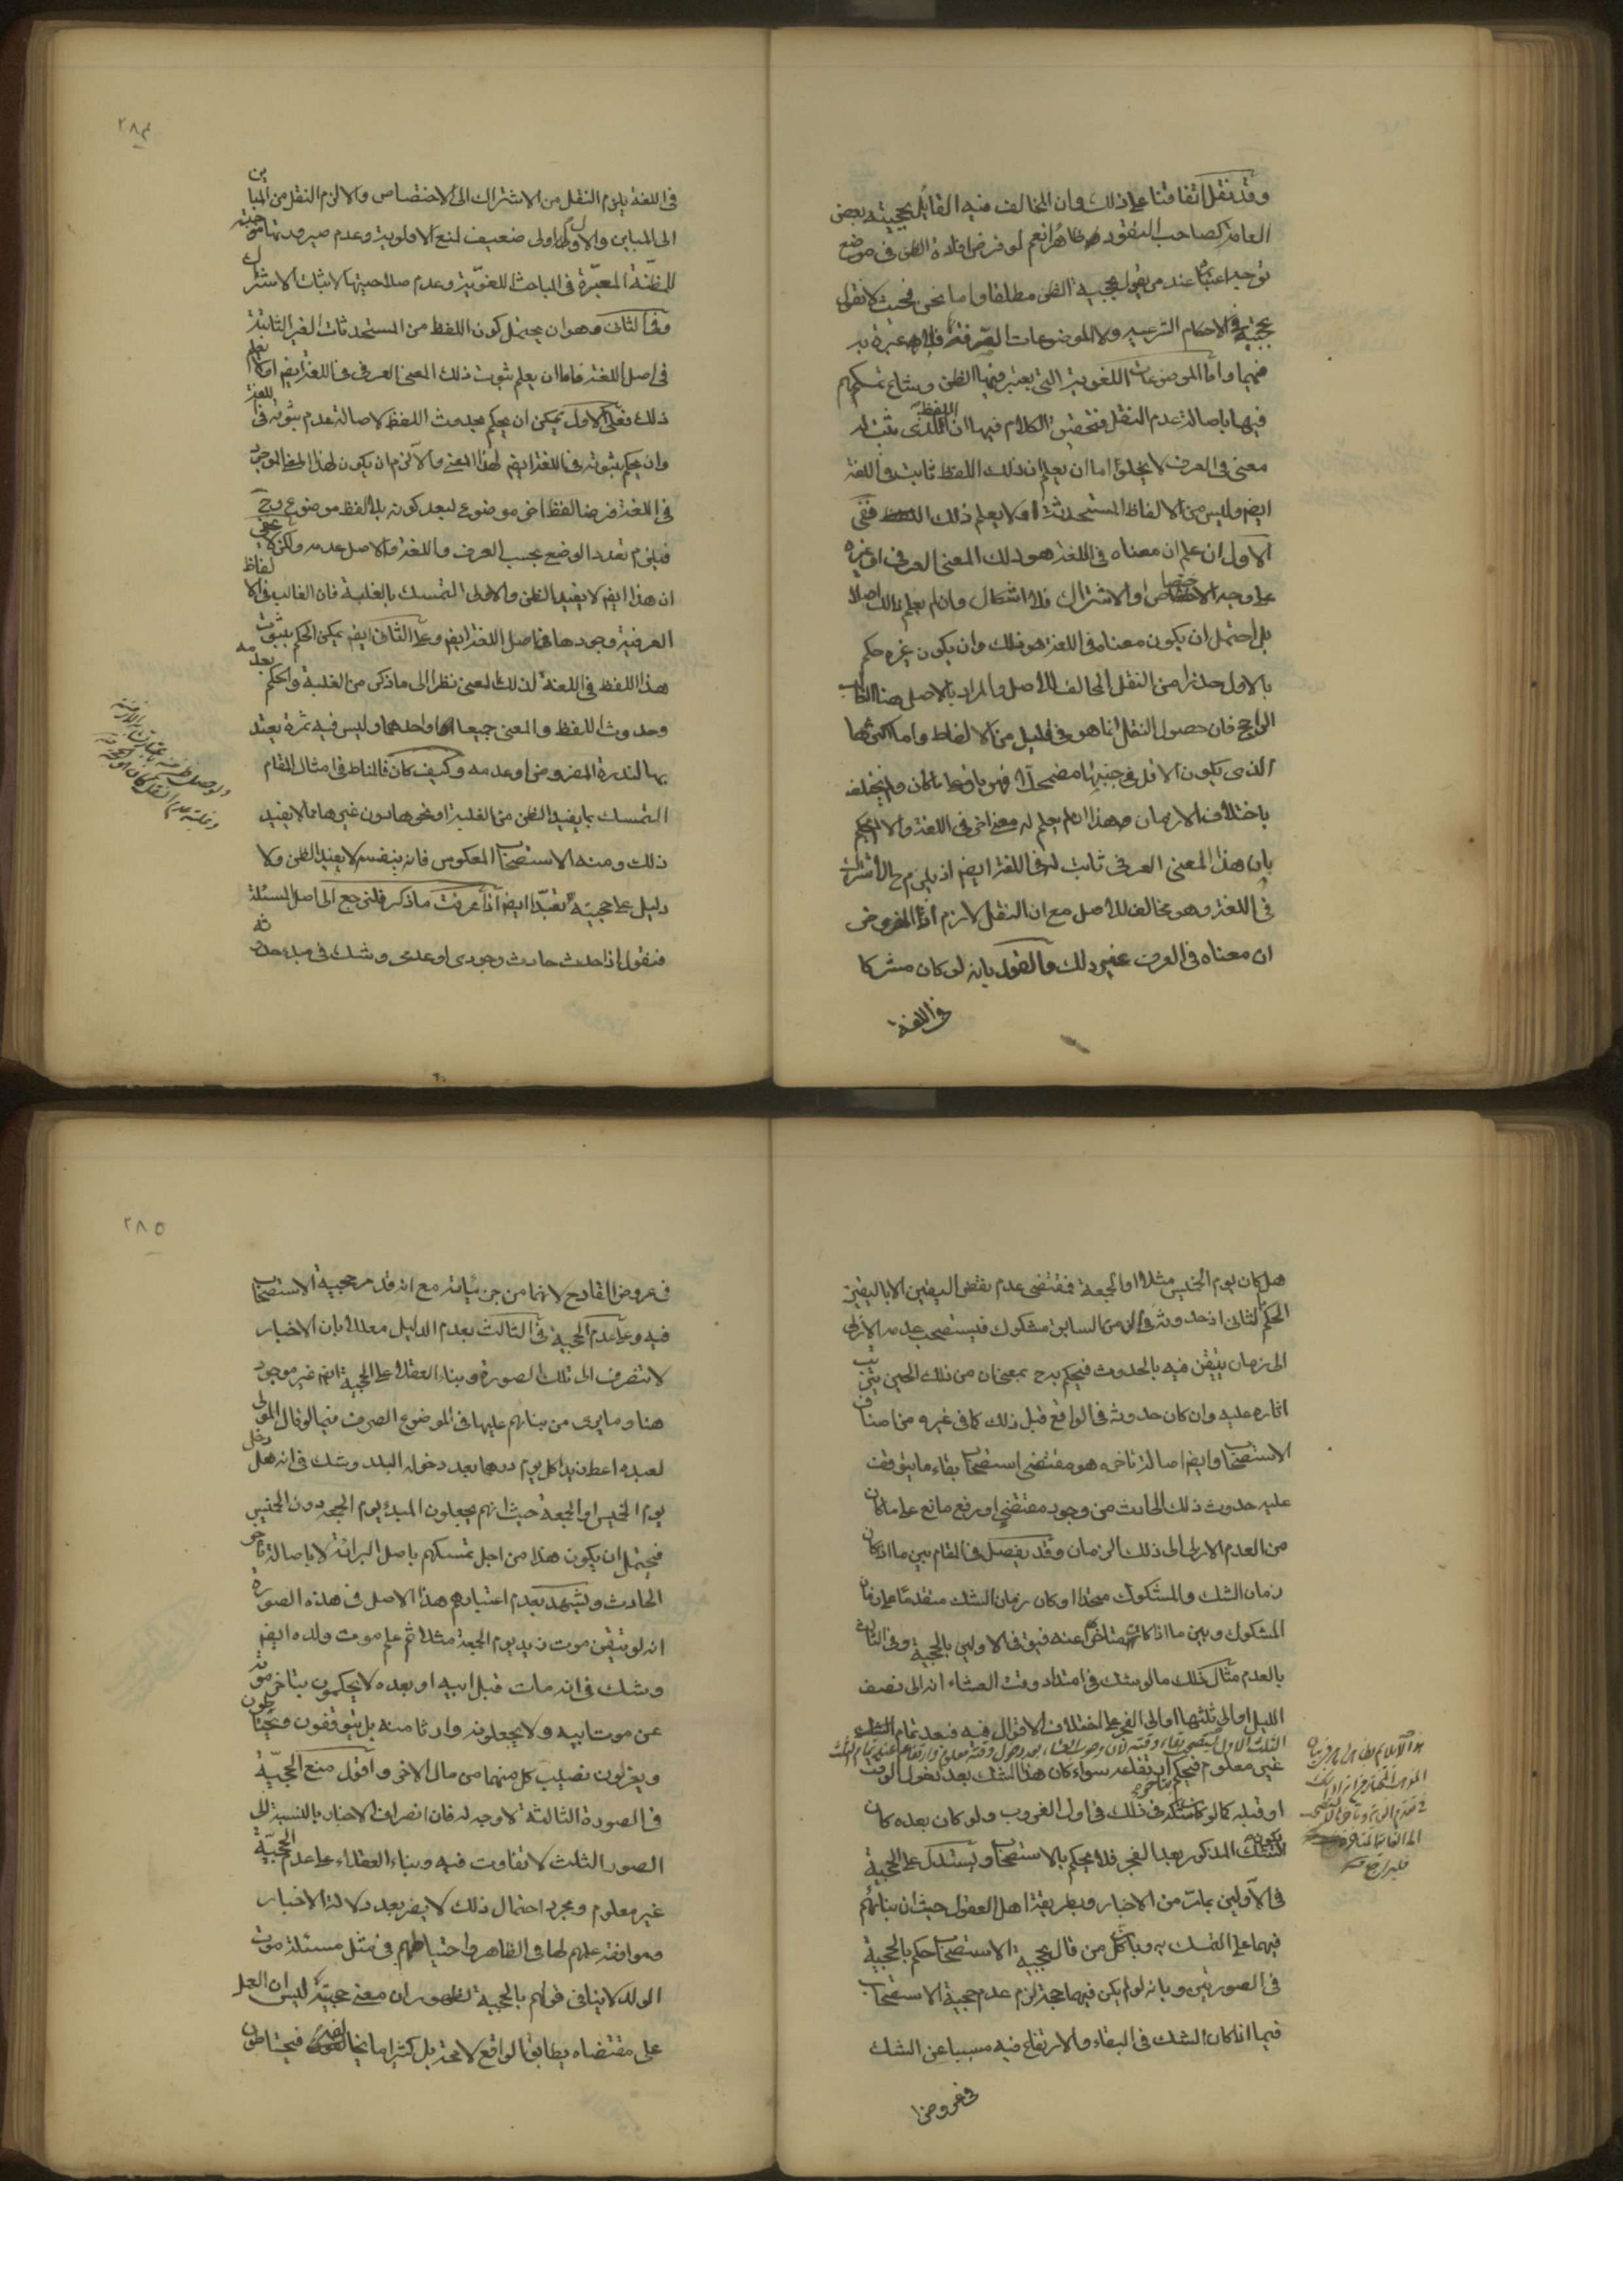 وقد نقل اتفاقنا على ذلك وان المخالف فيه القائل بحجيته بعض
العامة كصاحب النقود ظاهرا نعم لو فرض افادة الظن في موضع
توجه اعتباره عند من يقول بحجية الظن مطلقا واما نحن فحيث لا نقول
بحجيته في الاحكام الشرعية ولا الموضوعات الصرفة فلا عبرة به
فيهما واما الموضوعات اللغوية التي يعتبر فيها الظن وشاع تمسكهم
فيها باصالة عدم النقل فتحقيق الكلام فيها ان اللفظ الذي ثبت له
معنى في العرف لا يخلو اما ان يعلم ان ذلك اللفظ ثابت في اللغة
ايضم وليس من الالفاظ المستحدثة او لا يعلم ذلك ففي
الاول ان علم ان معناه في اللغة هو ذلك المعنى العرفي او غيره
على وجه الاختصاص او الاشتراك فلا اشكال وان لم يعلم ذلك اصلا
بل احتمل ان يكون معناه في اللغة هو ذلك وان يكون غيره حكم
بالاول حذرا من النقل المخالف للاصل والمراد بالاصل هنا الغالب
الراجح فان حصول النقل انما هو في قليل من الالفاظ واما اكثرها
الذي يكون الاقل في جنبها مضمحلا فهو باق على ما كان ولم يختلف
باختلاف الازمان وهذا ان لم يعلم له معنى اخر في اللغة والا لم يحكم
بان هذا المعنى العرفي ثابت له في اللغة ايضم اذ يلزم ح الاشتراك
في اللغة وهو مخالف للاصل مع ان النقل لازم اذ المفروض
ان معناه في العرف غير ذلك والقول بانه لو كان مشتركا
في اللغة
٢٨٤
في اللغة يلزم النقل من الاشتراك الى الاختصاص والا لزم النقل من المباين
الى المباين والاول اولى ضعيف لمنع الاولوية وعدم صيرورتها موجبة
للمظنة المعتبرة في المباحث اللغوية وعدم صلاحيتها لاثبات الاشتراك
وفي الثاني وهو ان يحتمل كون اللفظ من المستحدثات الغير الثابتة
في اصل اللغة فاما ان يعلم ثبوت ذلك المعنى العرفي في اللغة ايضم او لا يعلم
ذلك فعلى الاول يمكن ان يحكم بحدوث اللفظ لاصالة عدم ثبوته في اللغة
وان يحكم بثبوته في اللغة ايضم لهذا المعنى والا لزم ان يكون لهذا المعنى الموجود
في اللغة فرضا لفظ اخر موضوع لبعد كونه بلا لفظ موضوع وح
فيلزم تعدد الوضع بحسب العرف واللغة والاصل عدمه ولكن لا يخفى
ان هذا ايضم لا يفيد الظن والاولى التمسك بالغلبة فان الغالب في الالفاظ
العرفية وجودها في اصل اللغة ايضم وعلى الثاني ايضم يمكن الحكم بثبوت
هذا اللفظ في اللغة لذلك المعنى نظرا الى ما ذكر من الغلبة والحكم بعدمه
وحدوث اللفظ والمعنى جميعا او احدهما وليس فيه ثمرة يعتد
بها لندرة المفروض او عدمه وكيف كان فالمناط في امثال المقام
التمسك بما يفيد الظن من الغلبة او نحوها دون غيرها مما لا يفيد
ذلك ومنه الاستصحاب المعكوس فانه بنفسه لا يفيد الظن ولا
دليل على حجيته تعبدا ايضم اذا عرفت ما ذكر فلنرجع الى اصل المسئلة
فنقول اذا حدث حادث وجودي او عدمي وشك في مبدء حدوثه
هل كان يوم الخميس مثلا او الجمعة فمقتضى عدم نقض اليقين الا باليقين
الحكم بالثاني اذ حدوثه في الزمن السابق مشكوك فيستصحب عدمه الازلي
الى زمان يتيقن فيه بالحدوث فيحكم به ح بمعنى ان من ذلك الحين يترتب
اثاره عليه وان كان حدوثه في الواقع قبل ذلك كما في غيره من اصناف
الاستصحاب وايضم اصالة تاخره هو مقتضى استصحاب بقاء ما يتوقف
عليه حدوث ذلك الحادث من وجود مقتضي او رفع مانع على ما كان
من العدم الازلي الى ذلك الزمان وقد يفصل في المقام بين ما اذا كان
زمان الشك والمشكوك متحدا او كان زمان الشك متقدما على زمان
المشكوك وبين ما اذا كان متاخرا عنه فيق في الاولين بالحجية وفي الثالث
بالعدم مثال ذلك ما لو شك في امتداد وقت العشاء انه الى نصف
الليل او الى ثلثها او الى الفجر على اختلاف الاقوال فيه فبعد تمام
الثلث الاول يستصحب بقاء وقته لان وجوب العشاء بعد دخول وقته معلوم وارتفاعه عند تمام الثلث
غير معلوم فيحكم ببقائه سواء كان هذا الشك بعد دخول الوقت
او قبله كما لو كان شكه في ذلك في اول الغروب ولو كان بعده كان
الشك المذكور بعد الفجر فلا يحكم بالاستصحاب ويستدل على الحجية
في الاولين بما مر من الاخبار وبطريقة اهل العقول حيث ان بنائهم
فيهما على التمسك به وبان كل من قال بحجية الاستصحاب حكم بالحجية
في الصورتين وبانه لو لم يكن فيهما حجة لزم عدم حجية الاستصحاب
فيما اذا كان الشك في البقاء والارتفاع فيه مسببا عن الشك
في عروض
٢٨٥
في عروض القادح لانهما من جزئياته مع انه قد مر حجية الاستصحاب
فيه وعلى عدم الحجية في الثالث بعدم الدليل معللا بان الاخبار
لا تنصرف الى تلك الصورة وبناء العقلاء على الحجية ايضم غير موجود
هنا وما يرى من بنائهم عليها في الموضوع الصرف فيما لو قال المولى
لعبده اعط زيدا كل يوم درهما بعد دخوله البلد وشك في انه هل دخل
يوم الخميس او الجمعة حيث انهم يجعلون المبدء يوم الجمعة دون الخميس
فيحتمل ان يكون هذا من اجل تمسكهم باصل البرائة لا باصالة تاخر
الحادث ويشهد بعدم اعتبارهم هذا الاصل في هذه الصورة
انه لو تيقن موت زيد يوم الجمعة مثلا ثم علم موت ولده ايضم
وشك في انه مات قبل ابيه او بعده لا يحكمون بتاخر موته
عن موت ابيه ولا يجعلونه وارثا منه بل يتوقفون ويحتاطون
ويعزلون نصيب كل منهما من مال الاخر واقول منع الحجية
في الصورة الثالثة لا وجه له فان انصراف الاخبار بالنسبة الى
الصور الثلث لا تفاوت فيه وبناء العقلاء على عدم الحجية
غير معلوم ومجرد احتمال ذلك لا يضر بعد دلالة الاخبار
وموافقة عملهم لها في الظاهر واحتياطهم في مثل مسئلة موت
الولد لا ينافي قولهم بالحجية لظهور ان معنى حجيته ليس ان العمل
على مقتضاه يطابق الواقع لا محة بل كثيرا ما يخالفه فيحتاطون